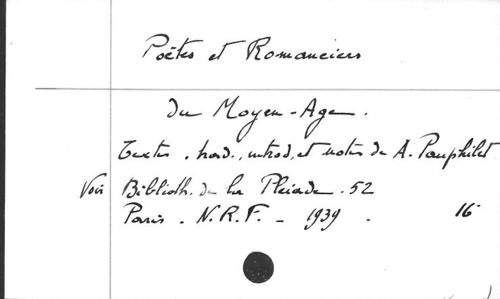 Poètes et Romanciers
du Moyen-Age.
Textes, trad., introd, et notes de A. Pauphilet
Voir Biblioth. de la Pleiade. 52
Paris. N.R.F. - 1939. 16